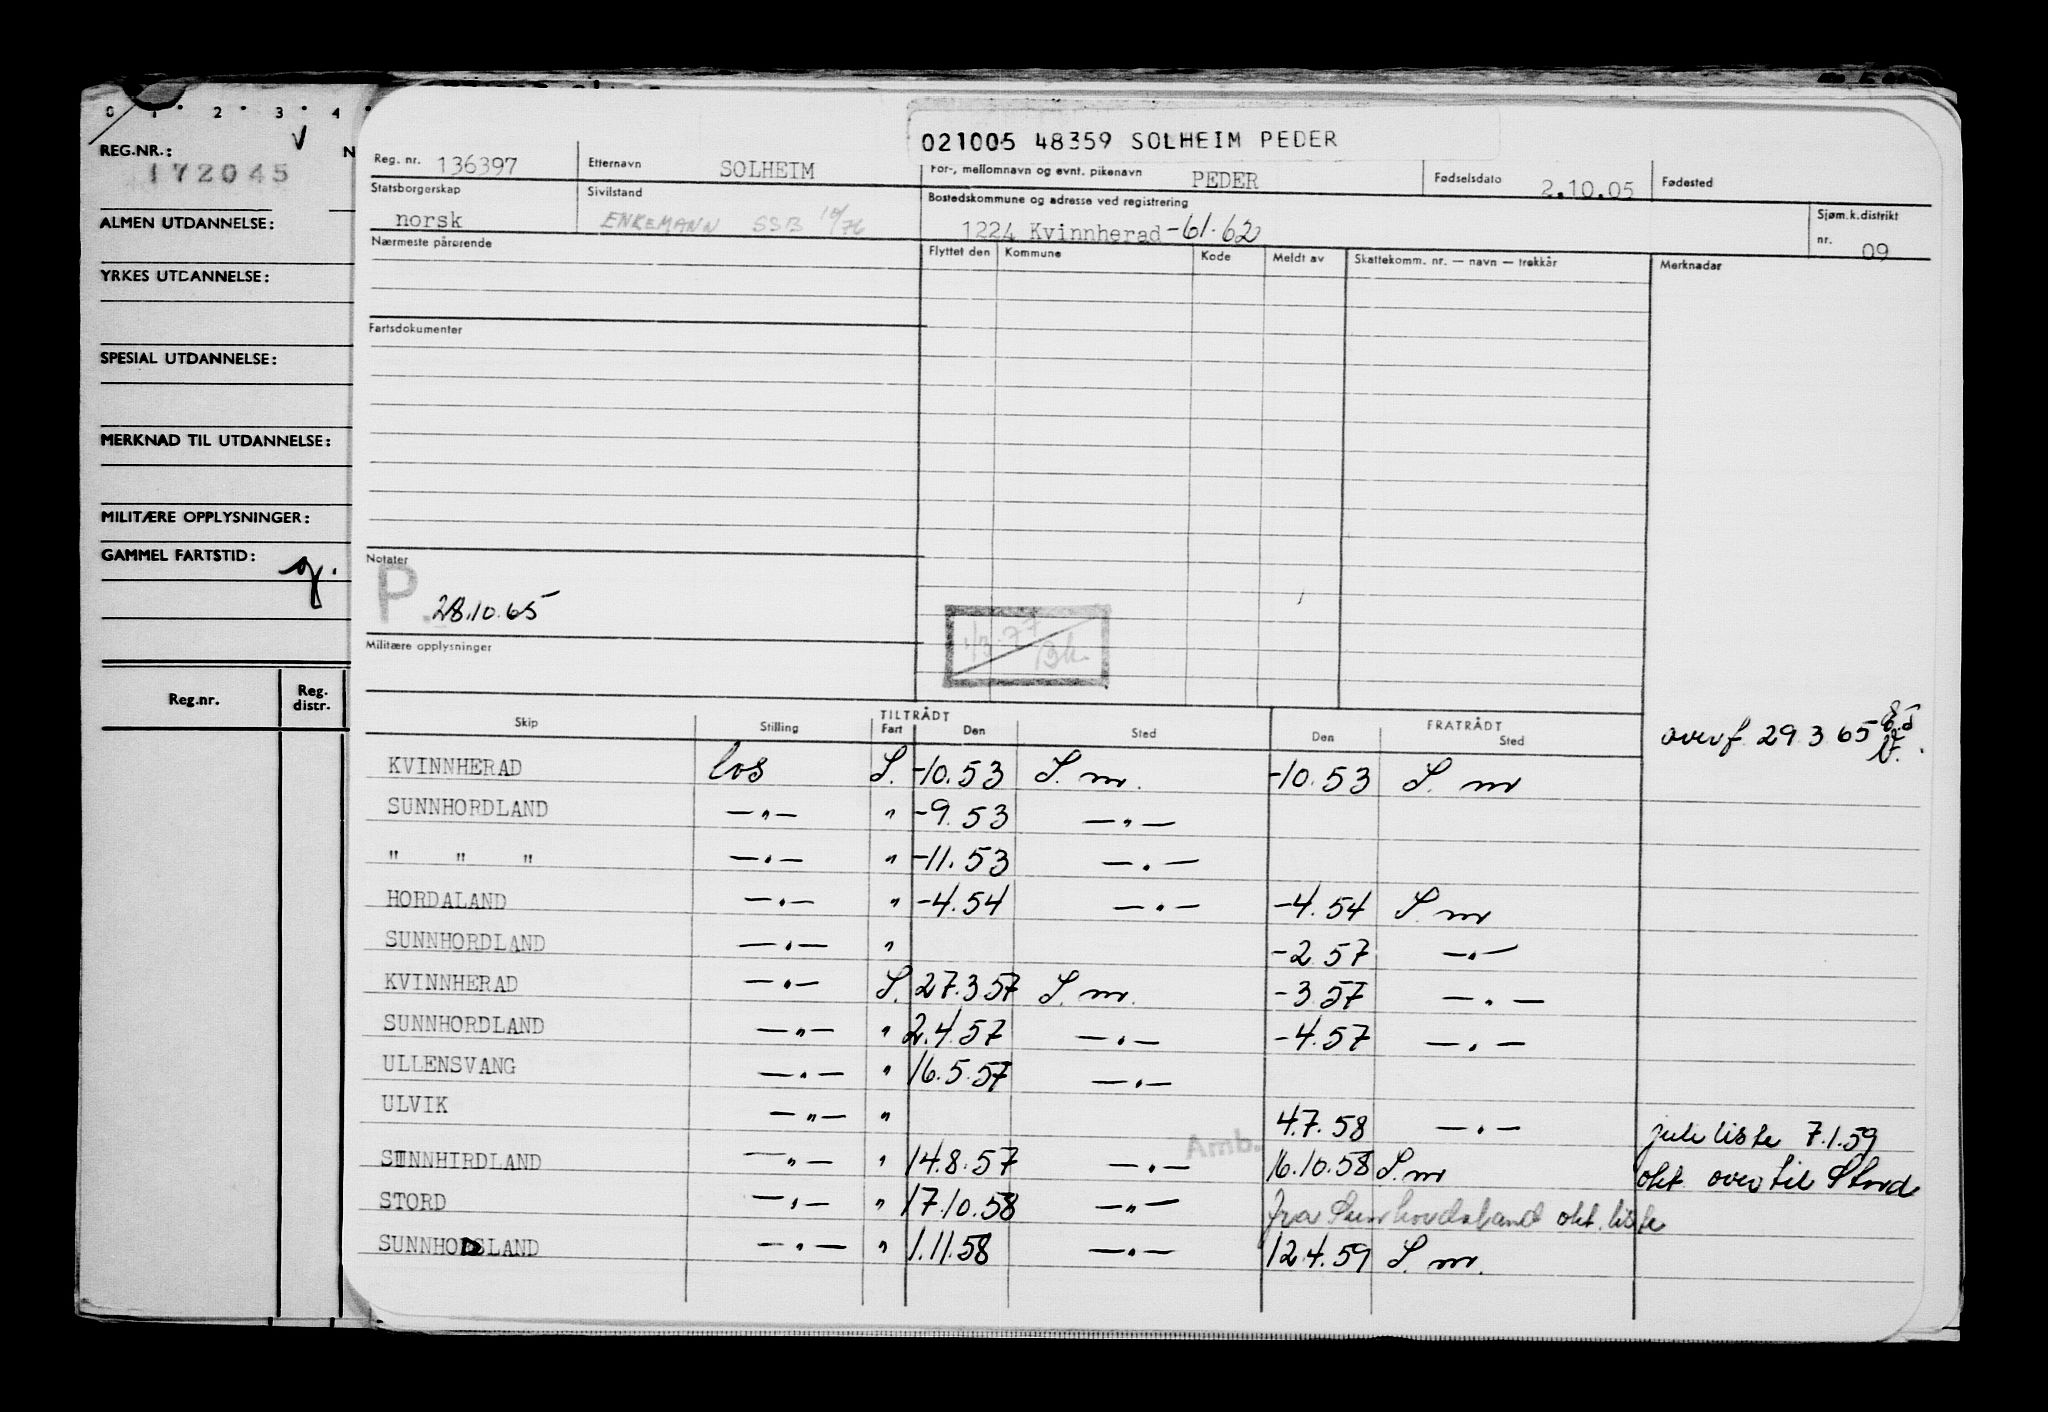 0 1 2 3 4
REG.NR.: N
172045
ALMEN UTDANNELSE:
YRKES UTDANNELSE:
SPESIAL UTDANNELSE:
MERKNAD TIL UTDANNELSE:
MILITÆRE OPPLYSNINGER:
GAMMEL FARTSTID:
Reg.nr. Reg. distr.
021005 48359 SOLHEIM PEDER
Reg. nr. 136397 Etternavn SOLHEIM For-, mellomnavn og evnt. pikenavn PEDER Fødselsdato 2.10.05 Fødested
Statsborgerskap norsk Sivilstand ENKEMANN SSB 10/76 Bostedskommune og adresse ved registrering 1224 Kvinnherad -61.62 Sjøm.k.distrikt nr. 09
Nærmeste pårørende Flyttet den Kommune Kode Meldt av Skattekomm. nr. — navn — trekkår Merknader
Fartsdokumenter
Notater
P. 28.10.65
1/3.77 Bk.
Militære opplysninger
TILTRÅDT FRATRÅDT
Skip Stilling Fart Den Sted Den Sted
overf 29.3.65
KVINNHERAD los S. -10.53 S. m. -10.53 S. m
SUNNHORDLAND —"— " -9.53 —"—
" " " —"— " -11.53 —"—
HORDALAND —"— " -4.54 —"— -4.54 S. m
SUNNHORDLAND —"— " -2.57 —"—
KVINNHERAD —"— S. 27.3.57 S. m. -3.57 —"—
SUNNHORDLAND —"— " 2.4.57 —"— -4.57 —"—
ULLENSVANG —"— " 16.5.57 —"—
ULVIK —"— " 4.7.58 —"— juli liste 7.1.59
Amb.
SUNNHIRDLAND —"— " 14.8.57 —"— 16.10.58 S. m okt. over til Stord
STORD —"— " 17.10.58 —"— fra Sunnhordaland okt. liste
SUNNHORDSLAND —"— " 1.11.58 —"— 12.4.59 S. m.